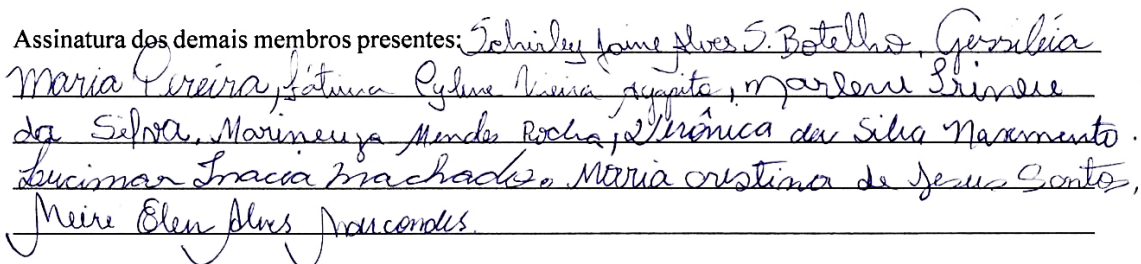 Assinatura dos demais membros presentes: Schirley Jaine Alves S. Botelho, Gersiléia
Maria Pereira, Fátima Vieira Agapito, Marlene Irineu
da Silva, Marineuza Mendes Rocha, Verônica da Silva Nascimento.
Lucimar Inacia Machado. Maria Cristina de Jesus Santos,
Meire Elen Alves Marcondes.